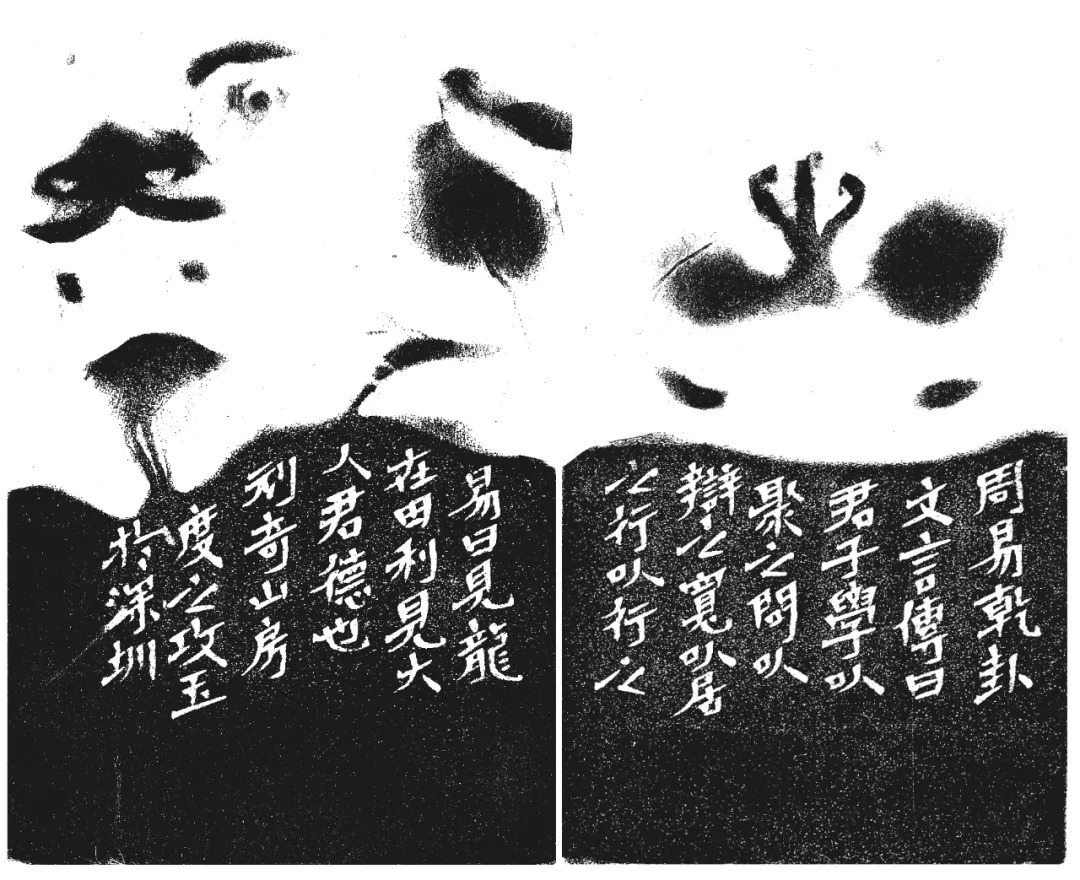 周易乾卦
文言傳曰
君子學以
聚之問以
辯之寬以居
之行以行之
易曰見龍
在田利見大
人君德也
奇山房
度之攻玉
於深圳